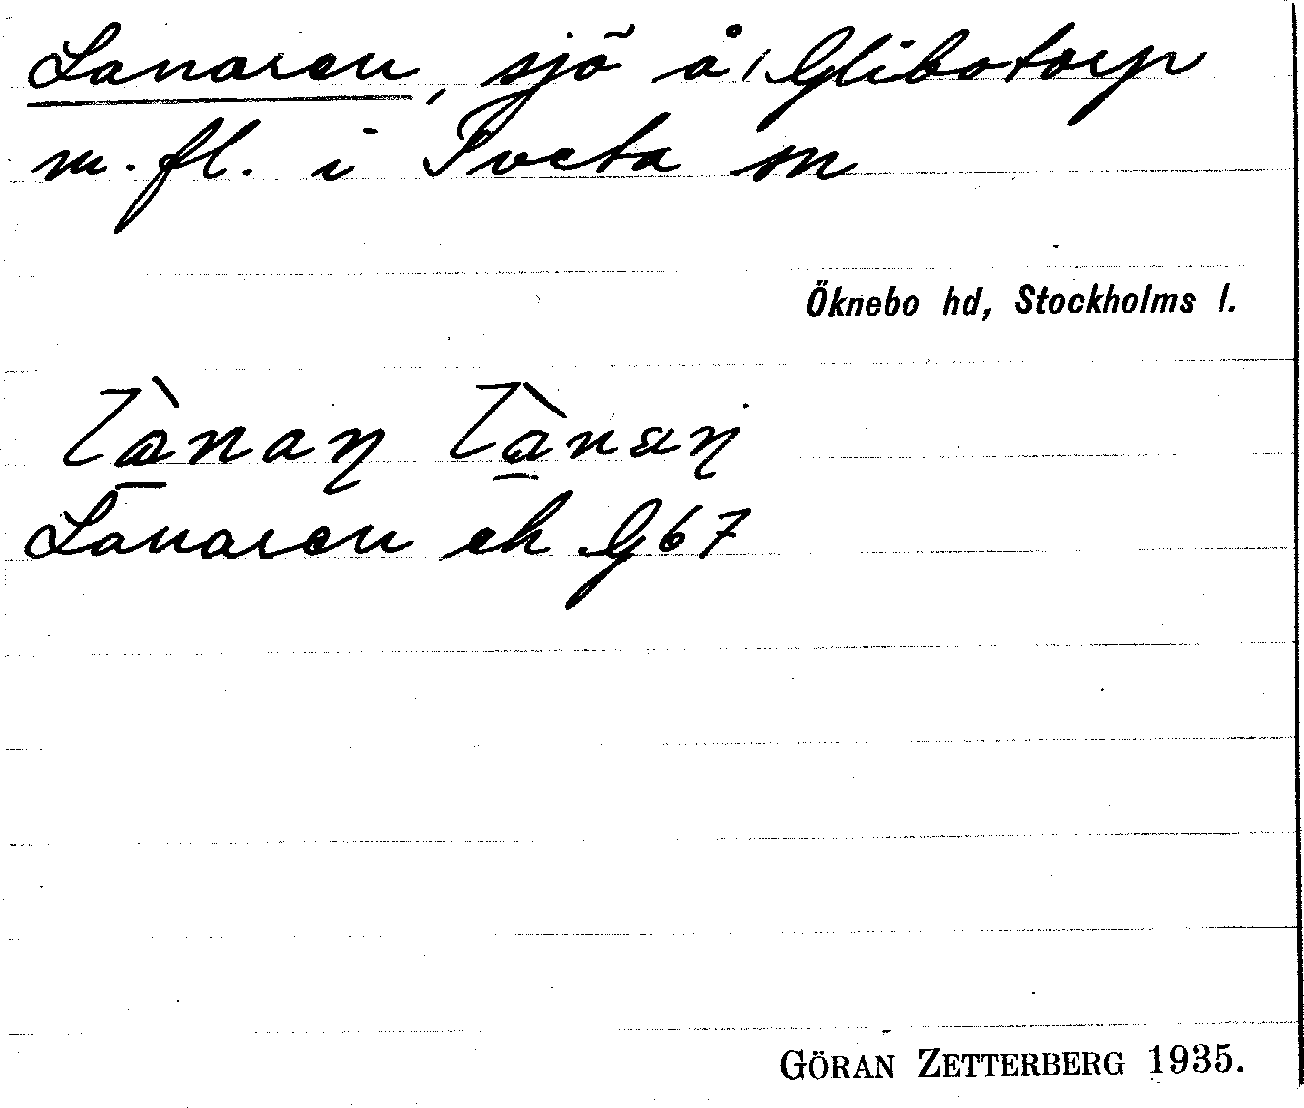 Lanaren, sjö å Glibotorp
m. fl. i Tveta sn
Öknebo hd, Stockholms l.
Lanaren ek G67
GÖRAN ZETTERBERG 1935.